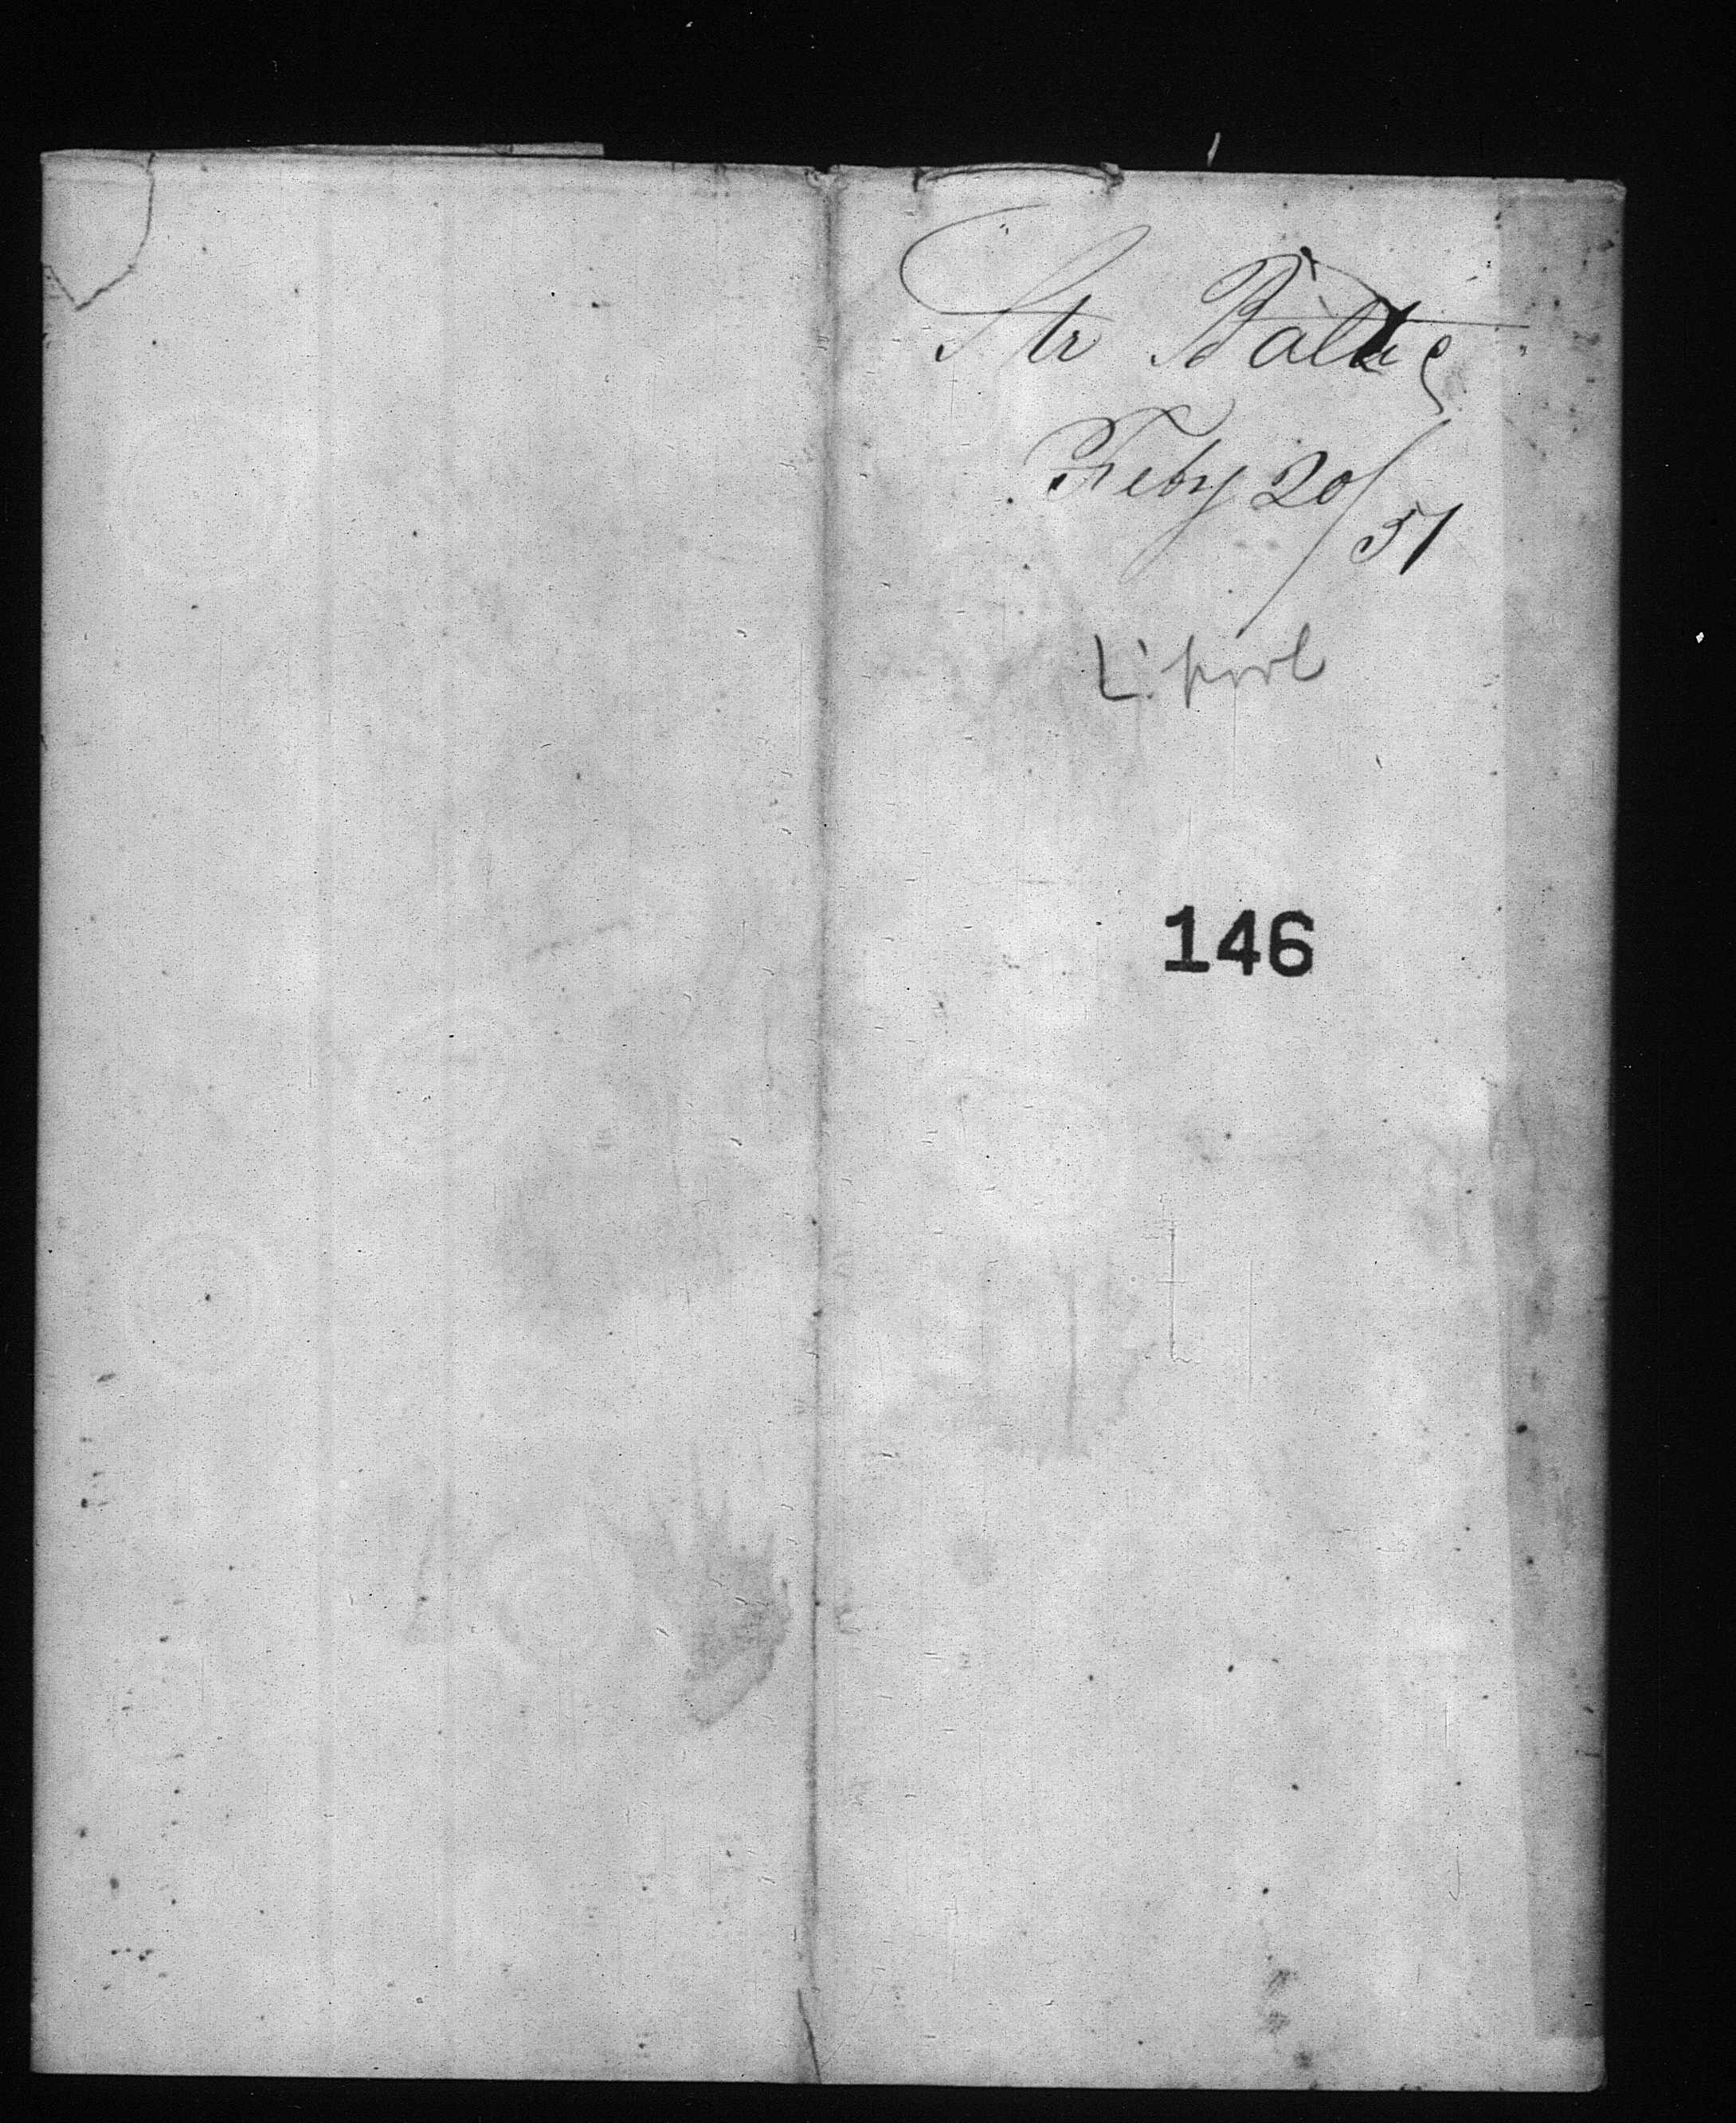 Str Baltic
Feby 20/51
L'pool
146